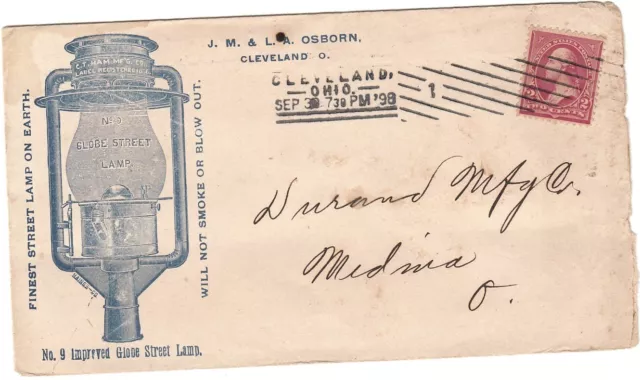 J. M. & L. A. OSBORN,
CLEVELAND O.
CLEVELAND,
OHIO.
SEP 30 730 PM '98
1
2 2
TWO CENTS
C.T. HAM MFG. CO.
LABEL REGISTERED
No. 9
GLOBE STREET
LAMP.
FINEST STREET LAMP ON EARTH.
WILL NOT SMOKE OR BLOW OUT.
No. 9 Improved Globe Street Lamp.
Durand Mfg Co.
Medina
O.